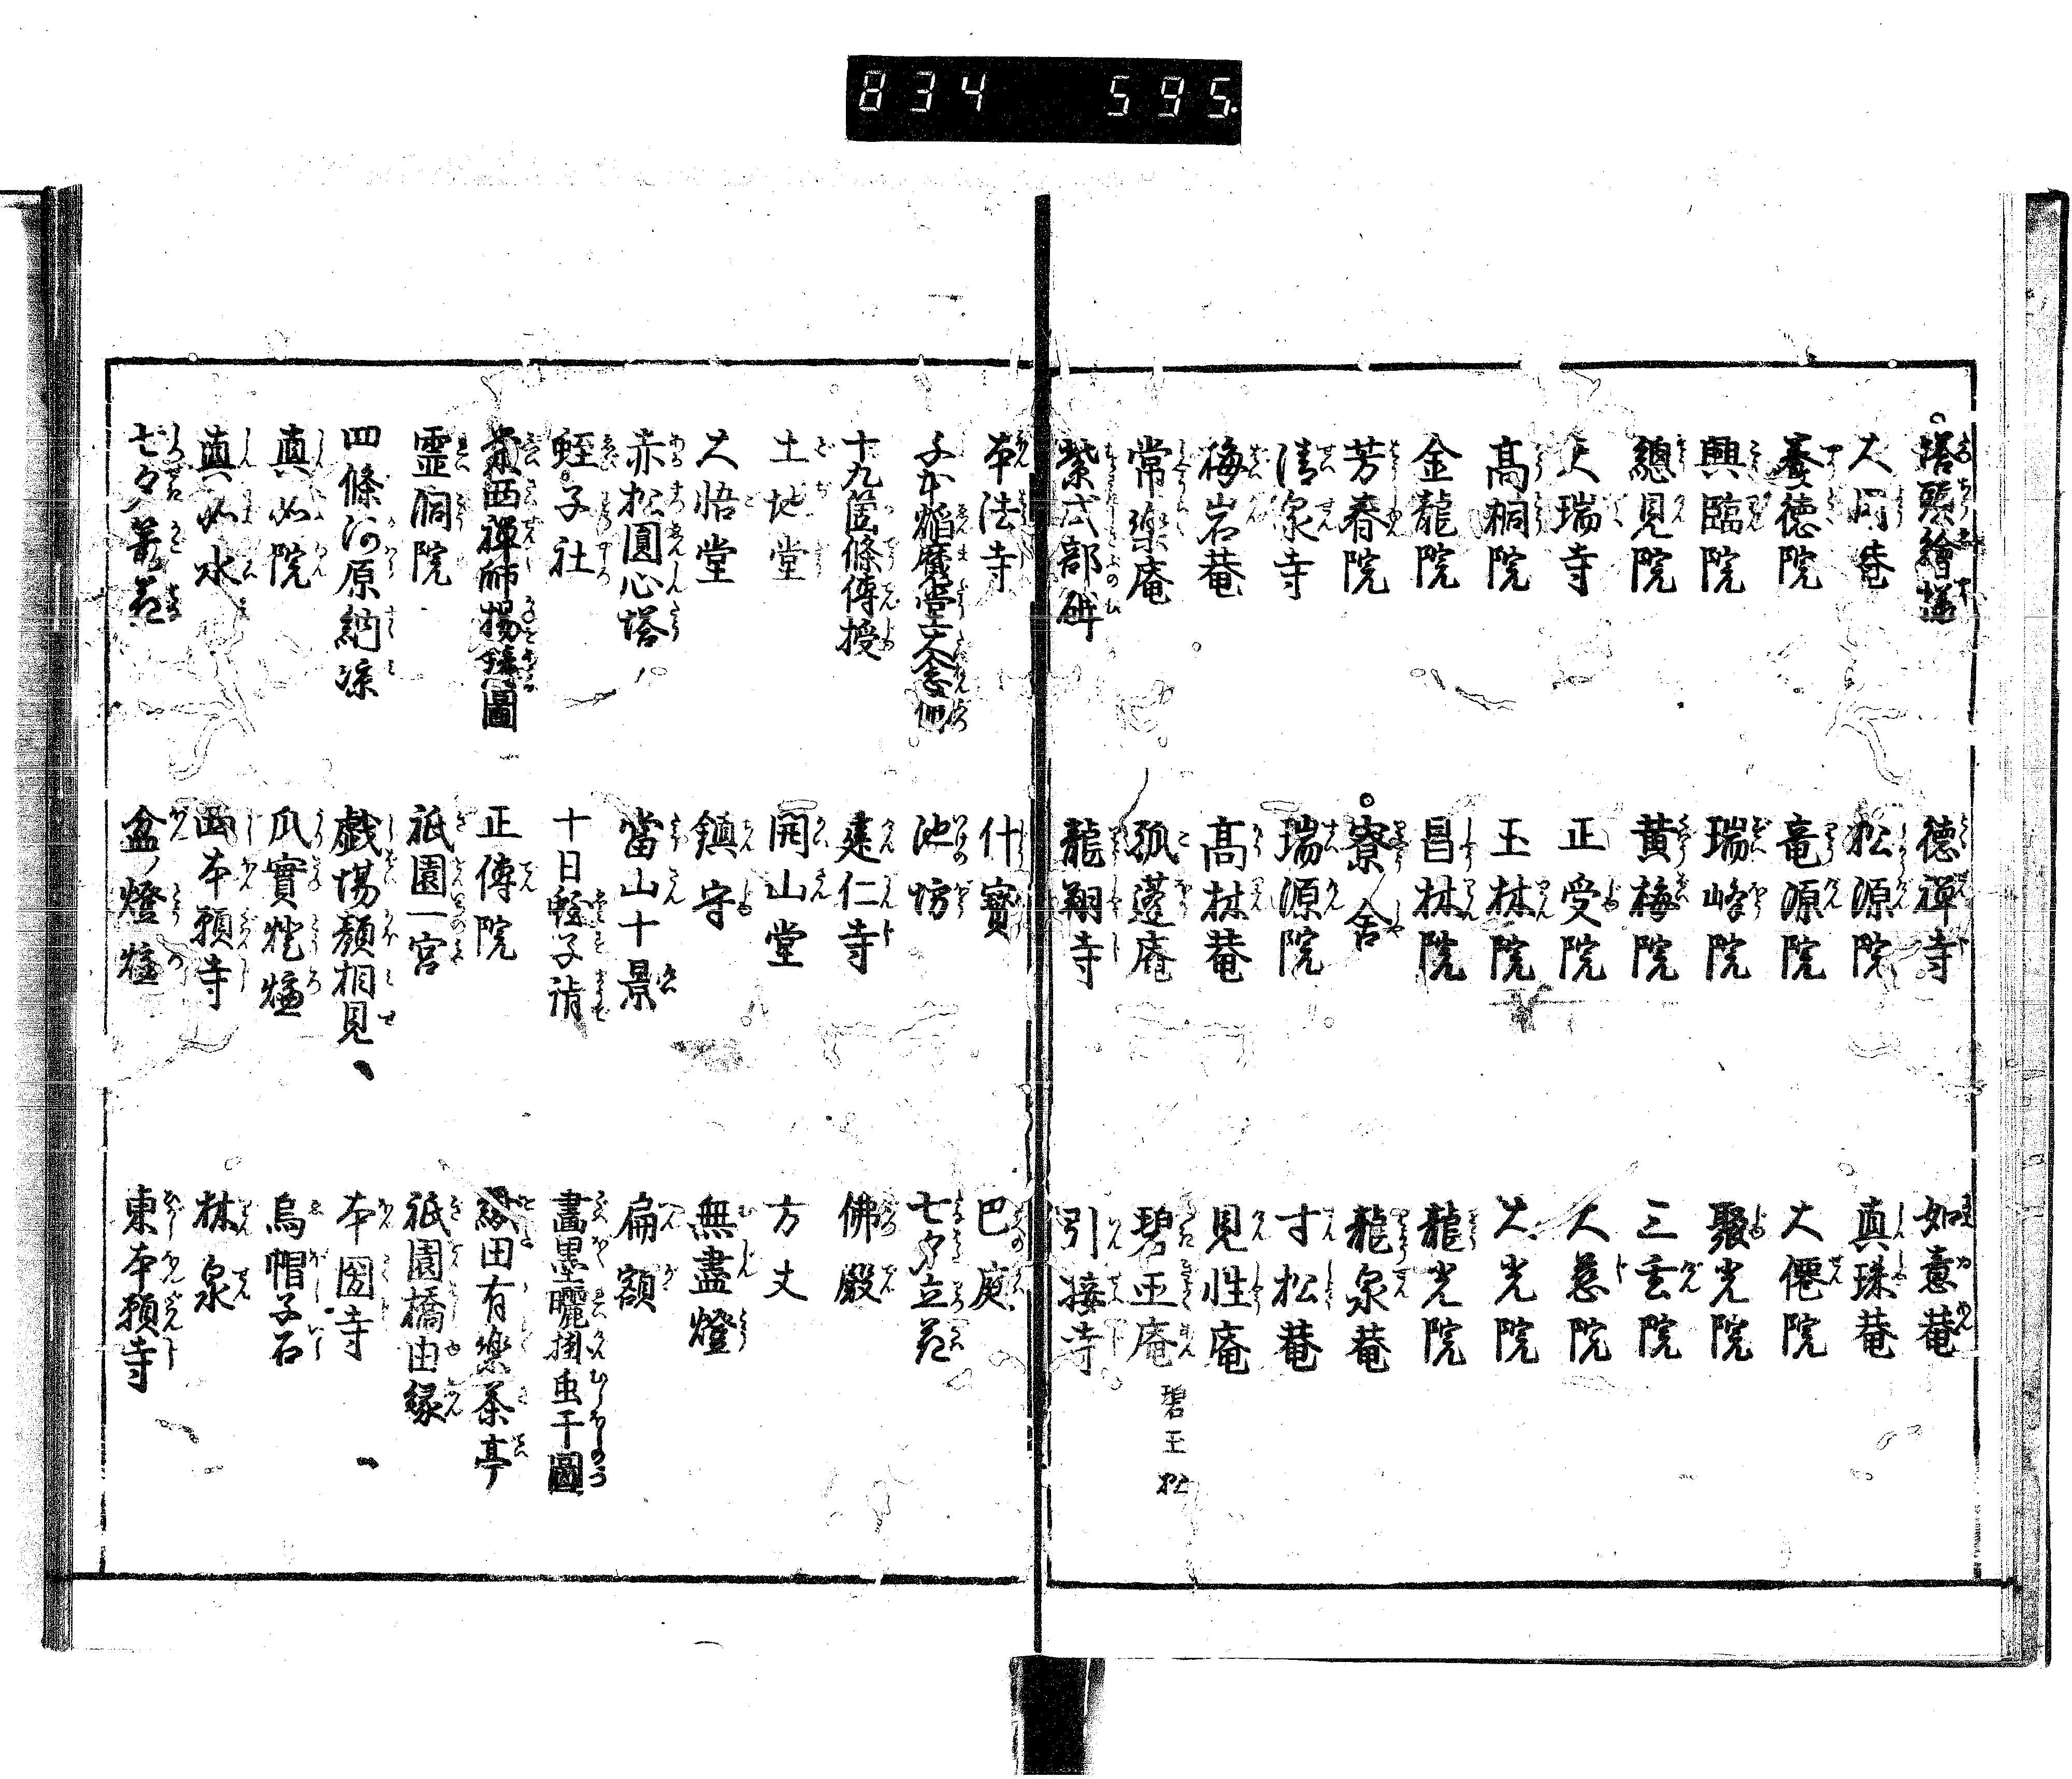 834 595.
塔頭繪圖 徳禅寺 如意菴
大同菴 松源院 真珠菴
養徳院 竜源院 大僊院
興臨院 瑞峰院 聚光院
總見院 黄梅院 三玄院
天瑞寺 正受院 大慈院
高桐院 玉林院 大光院
金龍院 昌林院 龍光院
芳春院 寮舎 龍泉菴
清泉寺 瑞源院 寸松菴
梅岩菴 高林菴 見性庵
常楽庵 孤蓬庵 碧玉庵 碧玉松
紫式部碑 龍翔寺 引接寺
本法寺 什寳 巴庭
千本焔魔堂大念佛 池坊 七夕立花
十九箇條傳授 建仁寺 佛殿
土地堂 開山堂 方丈
大悟堂 鎮守 無盡燈
赤松圓心塔 當山十景 扁額
蛭子社 十日蛭子詣 畵墨曬掛虫干圖
榮西禅師揚鐘圖 正傳院 織田有樂茶亭
霊洞院 祇園一宮 祇園橋由縁
四條河原納凉 戯場顔相見 本圀寺
真如院 瓜實燈爐 烏帽子石
真如水 西本願寺 林泉
七夕籠花 盆ノ燈爐 東本願寺